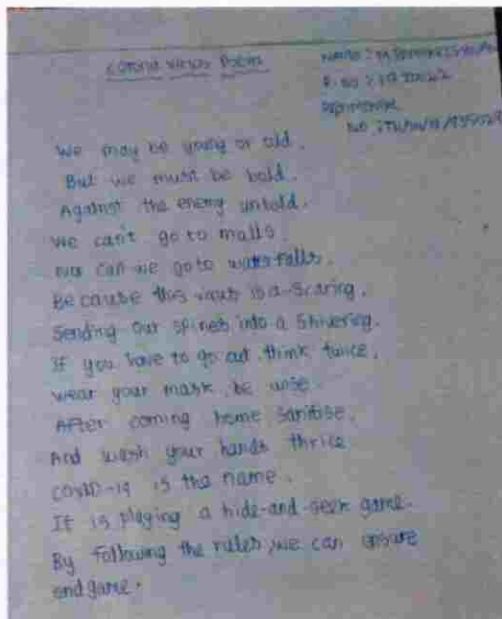 corona virus Poem
We may be young or old.
But we must be bold.
Against the enemy untold.
We can't go to malls.
Nor can we goto waterfalls.
Because this virus is a-Scaring.
Sending our spines into a Shivering.
If you have to go out, think twice.
wear your mask, be wise.
After coming home sanitise.
And wash your hands thrice
COVID-19 is the name.
It is playing a hide-and-seek game.
By following the rules, we can
endgame.